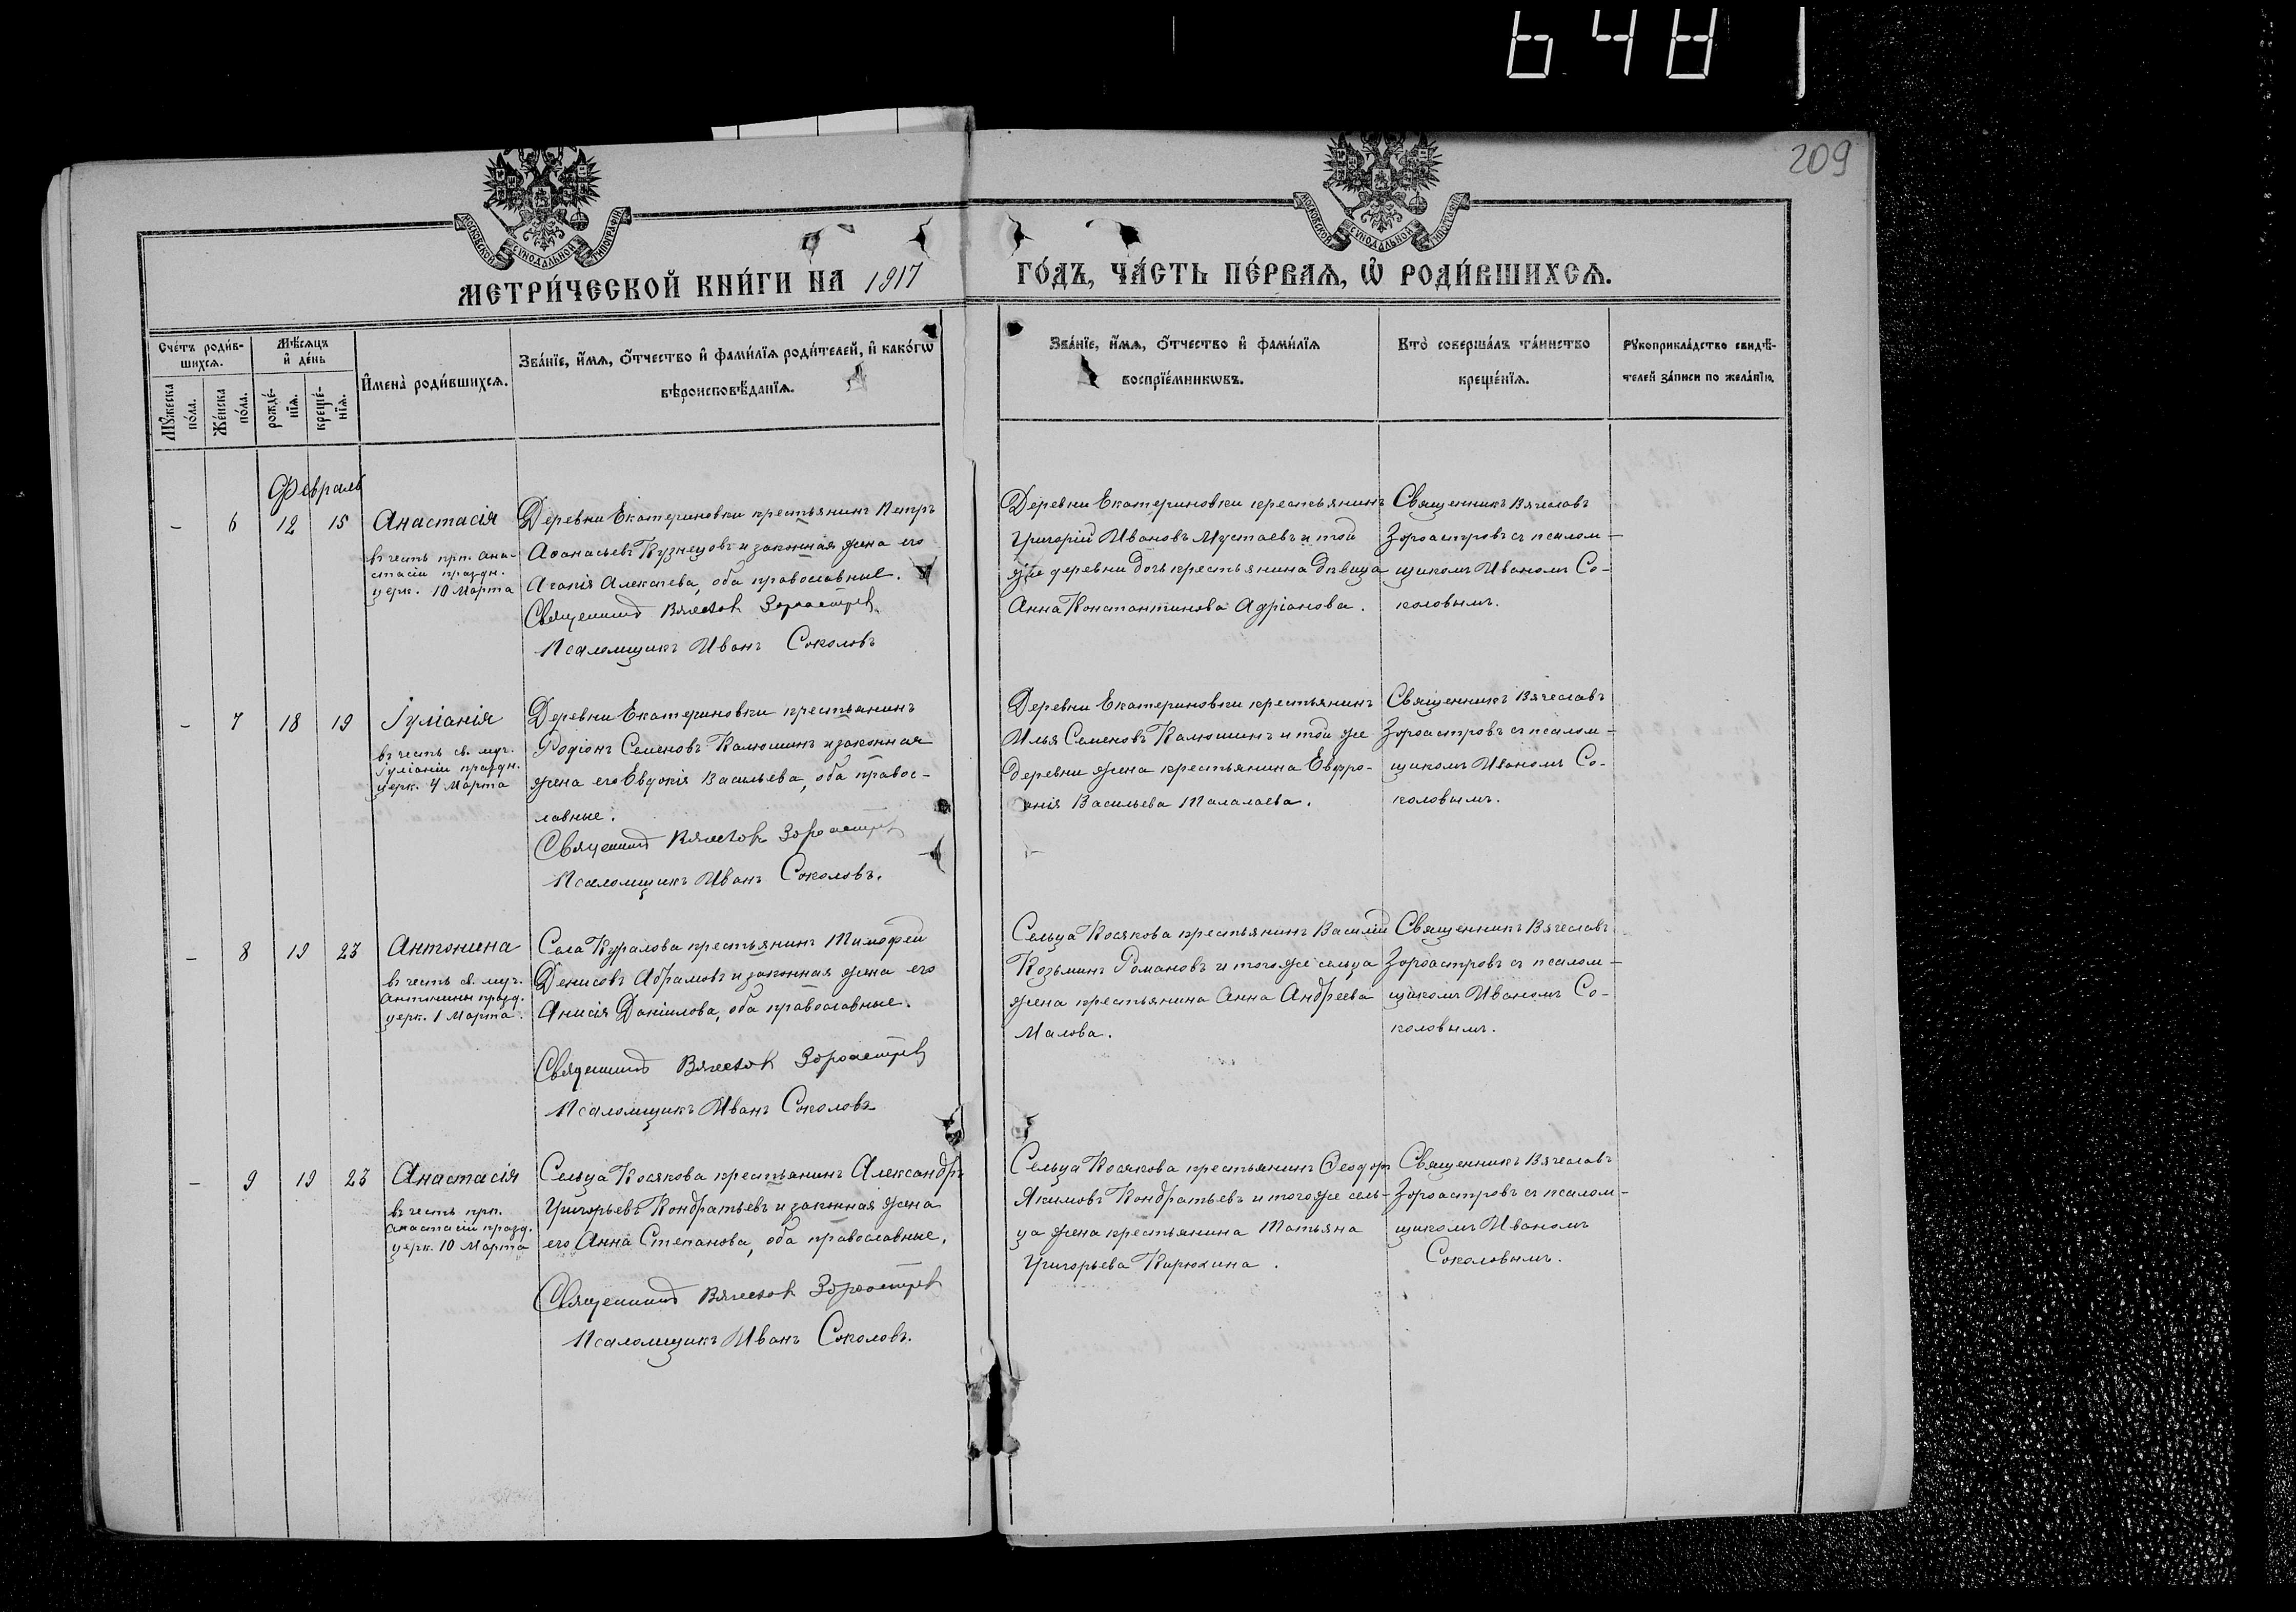 648
209
МОСКОВСКОЙ СѴНОДАЛЬНОЙ ТИПОГРАФІИ
МОСКОВСКОЙ СѴНОДАЛЬНОЙ ТИПОГРАФІИ
МЕТРИ́ЧЕСКОЙ КНИ́ГИ НА 1917
ГО́ДЪ, ЧА́СТЬ ПЕ́РВАѦ, Ѽ РОДИ́ВШИХСѦ.
Сче́тъ роди́в-
шихсѧ.
Мѣ́сѧцъ
и҆ де́нь
Мꙋ́жеска
по́ла.
Же́нска
по́ла.
рожде́-
нїѧ.
креще́-
нїѧ.
И҆мена̀ роди́вшихсѧ.
Зва́нїе, и҆́мѧ, ѻ҆́тчество и҆ фами́лїѧ роди́телей, и҆ како́гѡ
вѣроисповѣ́данїѧ.
Зва́нїе, и҆́мѧ, ѻ҆́тчество и҆ фами́лїѧ
воспрїе́мникѡвъ.
Кто̀ соверша́лъ та́инство
креще́нїѧ.
Рꙋкоприкла́дство свидѣ́-
телей за́писи по жела́нїю.
Февраль
- 6 12 15 Анастасія
въ честь прп. Ана-
стасіи праздн.
церк. 10 Марта
Деревни Екатериновки крестьянинъ Петръ
Аѳанасьевъ Кузнецовъ и законная жена его
Агапія Алексѣева, оба православные.
Священникъ Вячеславъ Зороастровъ
Псаломщикъ Иванъ Соколовъ
Деревни Екатериновки крестьянинъ
Григорій Ивановъ Мустаевъ и той
же деревни дочь крестьянина дѣвица
Анна Константинова Адріанова.
Священникъ Вячеславъ
Зороастровъ съ псалом-
щикомъ Иваномъ Со-
коловымъ.
- 7 18 19 Іуліанія
въ честь св. муч.
Іуліаніи праздн.
церк. 4 Марта
Деревни Екатериновки крестьянинъ
Родіонъ Семеновъ Калюшинъ и законная
жена его Евдокія Васильева, оба правос-
лавные.
Священникъ Вячеславъ Зороастровъ
Псаломщикъ Иванъ Соколовъ.
Деревни Екатериновки крестьянинъ
Илья Семеновъ Калюшинъ и той же
деревни жена крестьянина Евфро-
Васильева Талалаева.
Священникъ Вячеславъ
Зороастровъ съ псалом-
щикомъ Иваномъ Со-
коловымъ.
- 8 19 23 Антонина
въ честь св. муч.
Антонины празд.
церк. 1 Марта.
Села Куралова крестьянинъ Тимофей
Денисовъ Абрамовъ и законная жена его
Анисія Даніилова, оба православные.
Священникъ Вячеславъ Зороастровъ
Псаломщикъ Иванъ Соколовъ
Сельца Косякова крестьянинъ Василій
Козьминъ Романовъ и того же сельца
жена крестьянина Анна Андреева
Малова.
Священникъ Вячеславъ
Зороастровъ съ псалом-
щикомъ Иваномъ Со-
коловымъ.
- 9 19 23 Анастасія
въ честь прп.
Анастасіи празд.
церк. 10 Марта
Сельца Косякова крестьянинъ Александръ
Григорьевъ Кондратьевъ и законная жена
его Анна Степанова, оба православные.
Священникъ Вячеславъ Зороастровъ
Псаломщикъ Иванъ Соколовъ.
Сельца Косякова крестьянинъ Ѳеодоръ
Якимовъ Кондратьевъ и того же сель-
ца жена крестьянина Татьяна
Григорьева Кирюхина.
Священникъ Вячеславъ
Зороастровъ съ псалом-
щикомъ Иваномъ
Соколовымъ.